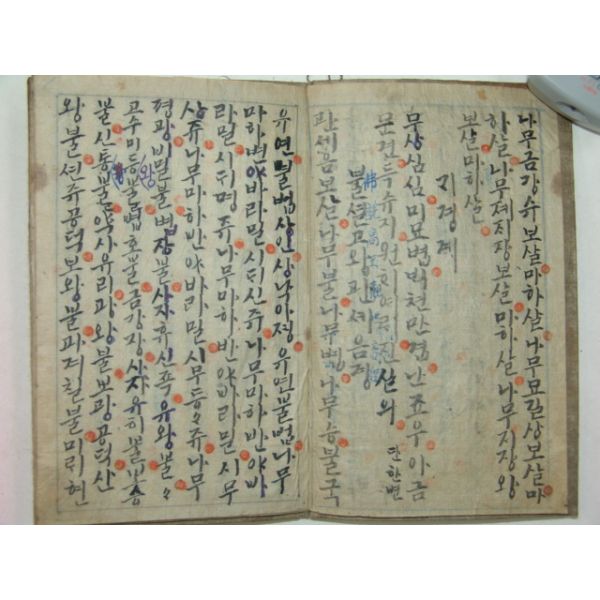 나무금강슈보살마하살나무묘길상보살마
하살나무졔지장보살마하살나무지장왕
보살마하살
기경게
무상심심미묘법빅쳔만겁난죠우아금
문견득슈지원히여래진실의 단한변
불셜고왕관셰음경
관셰음보살나무불나무법나무승불국
유연불법상인상낙아졍유연불법나무
마하반야바라밀시되신쥬나무마하반야바
라밀시되명쥬나무마하반야바라밀시무
상쥬나무마하반야바라밀시무등々쥬나무
평광비밀불법장불사자후신죡유왕불々
고슈미등불법호불금강장사자유희불보승
불신통불약사유리광왕불보광공덕산
왕불션쥬공덕보왕불과거칠불미릭현